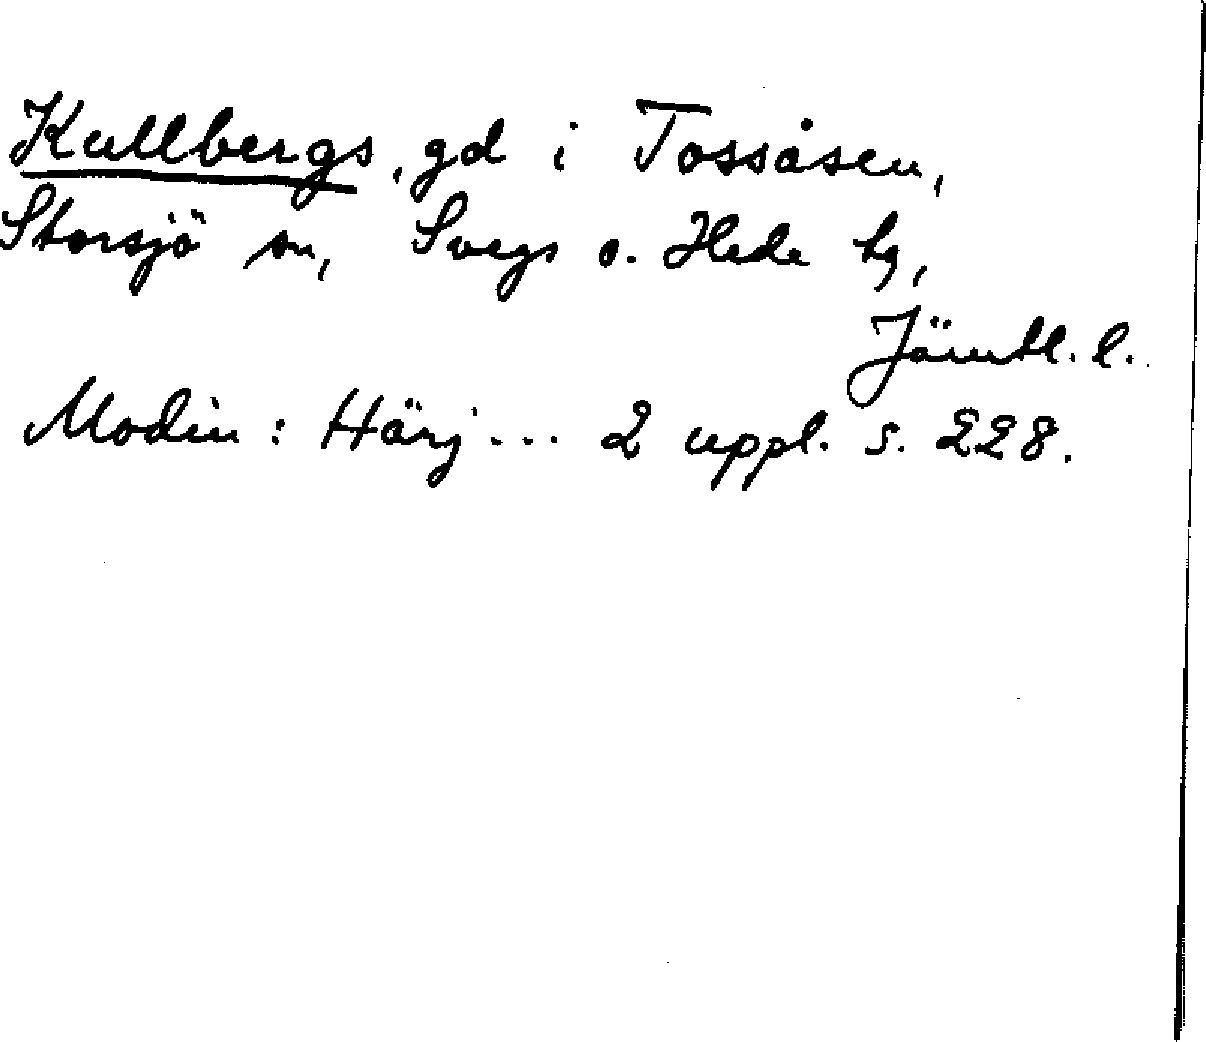 Kullbergs, gd i Tossåsen,
Storsjö sn, Svegs o. Hede tg,
Jämtl. l.
Modin: Härj... 2 uppl. s. 228.